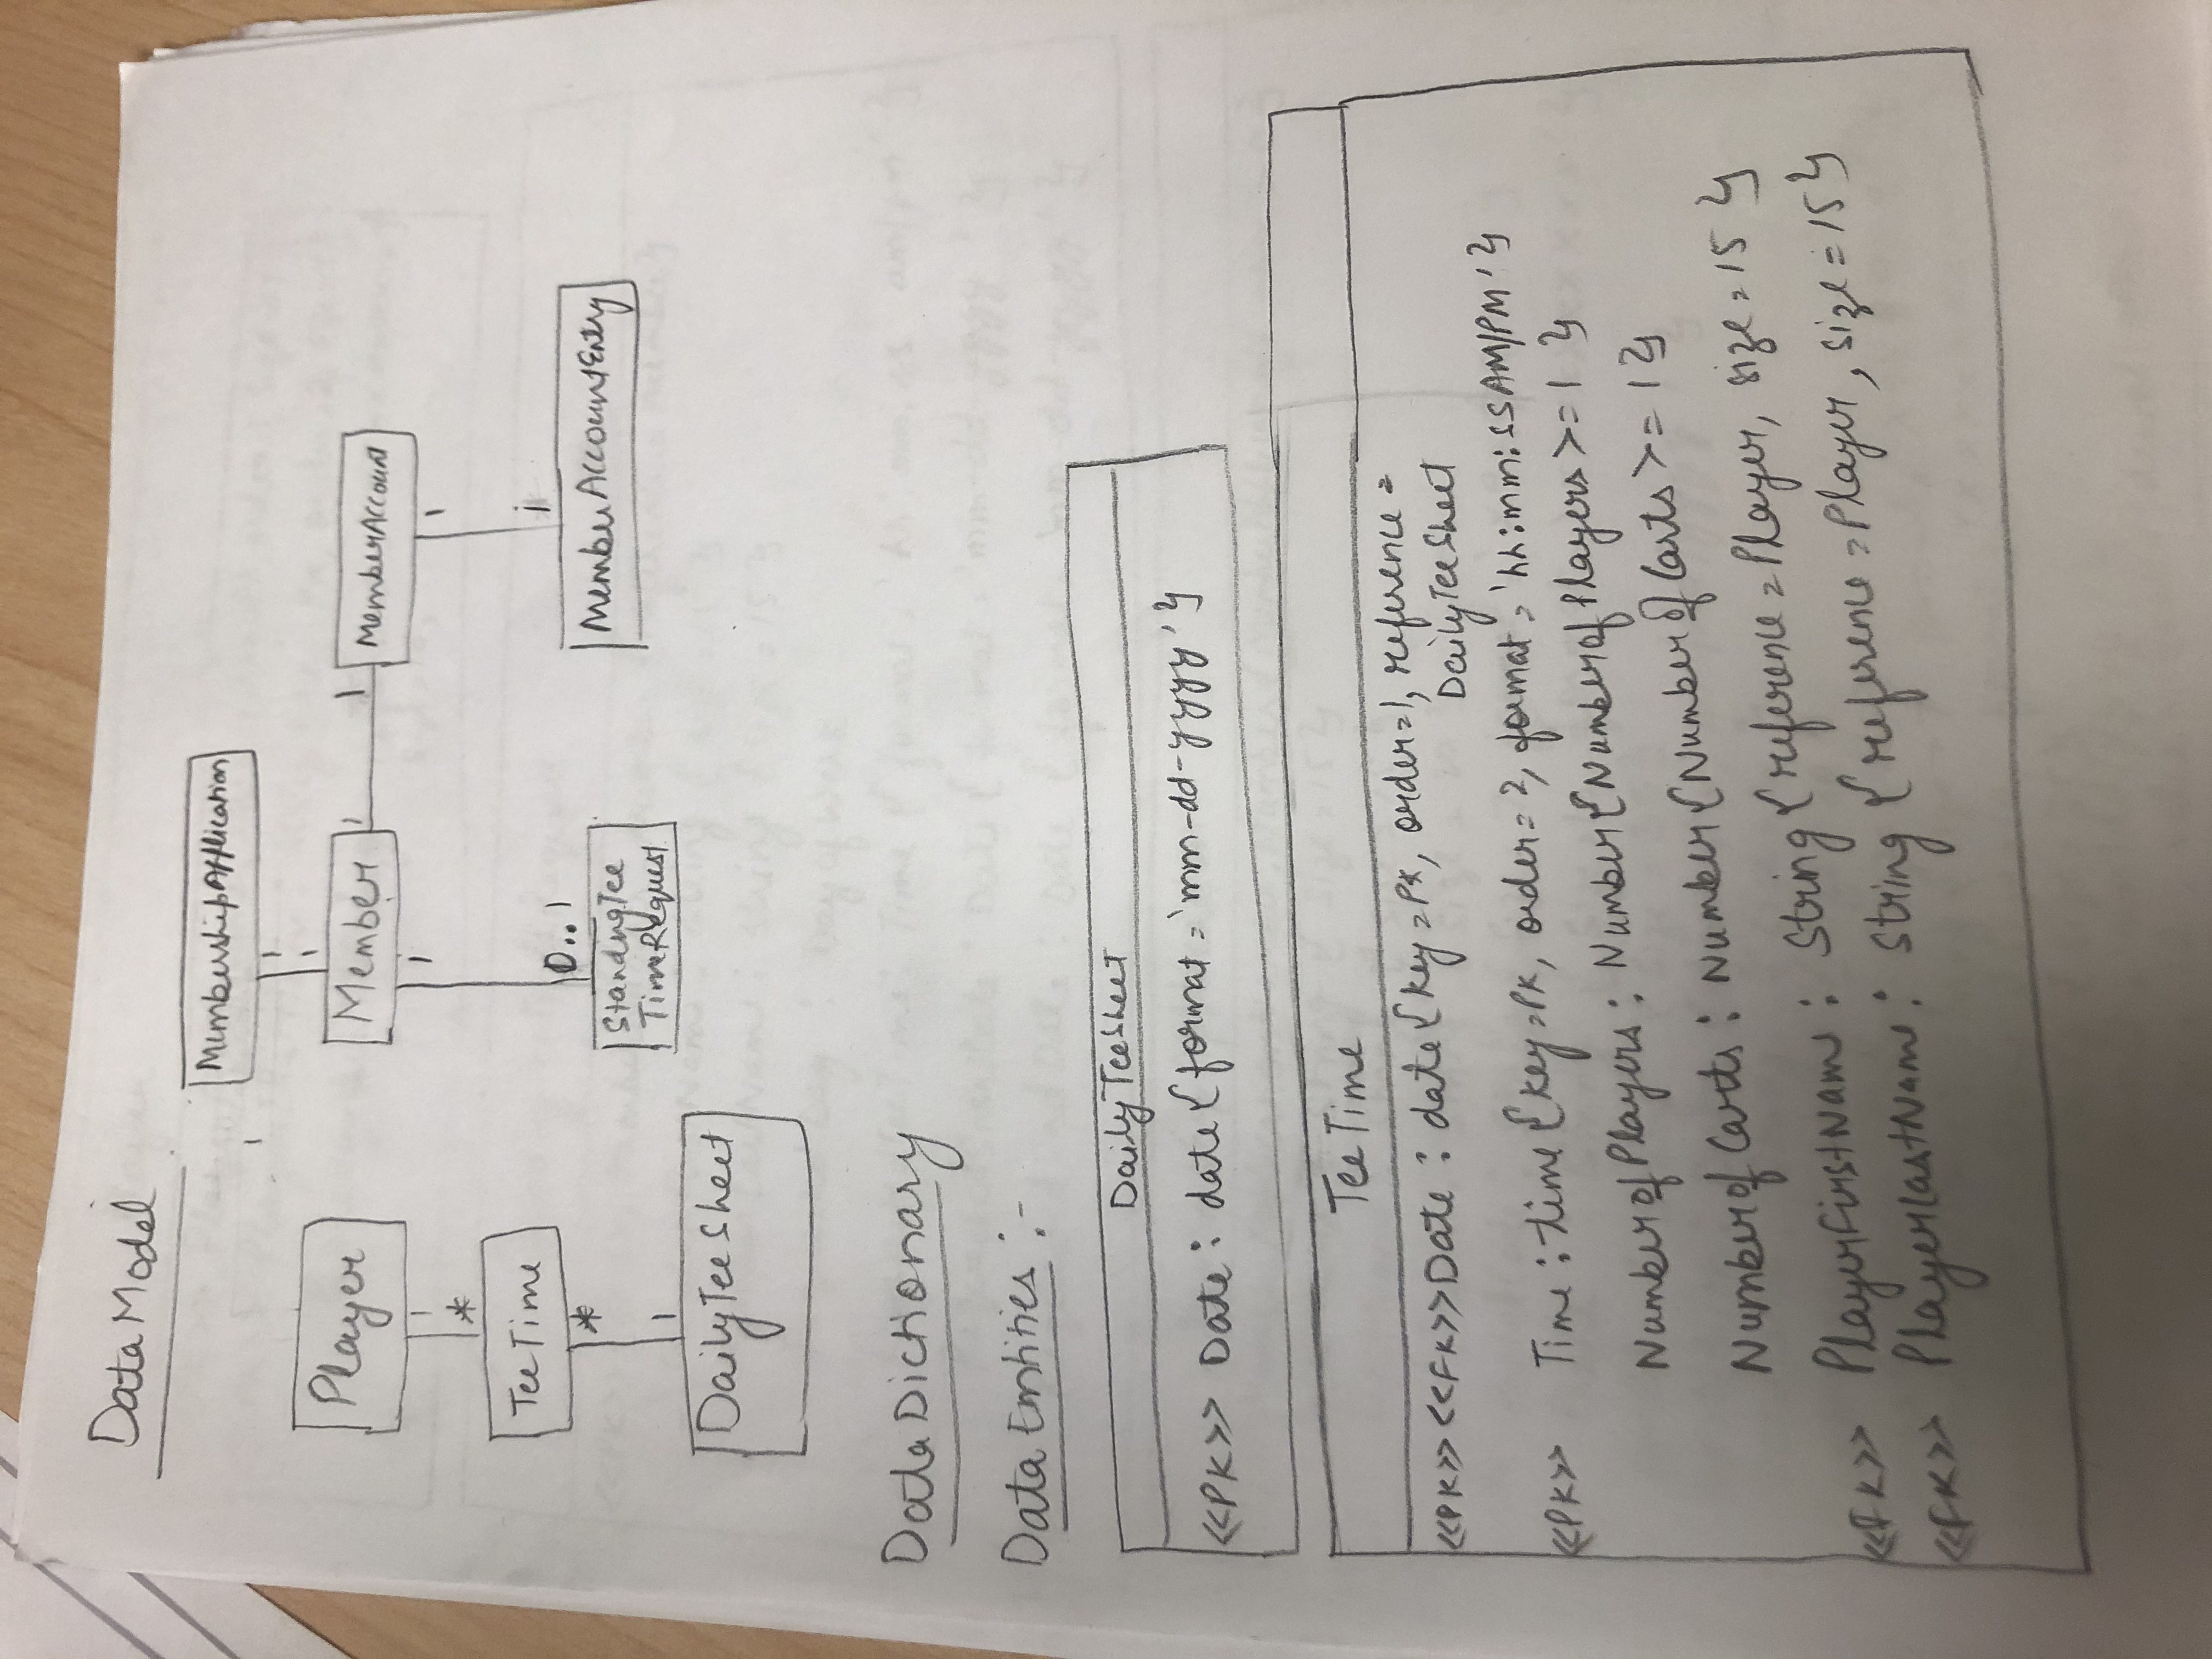 Data Model
MembershipApplication
1
1
Player
Member
1
1
MemberAccount
1
*
1
1
TeeTime
*
0..1
1
StandingTee
TimeRequest
MemberAccountEntry
1
DailyTeeSheet
Data Dictionary
Data Entities :-
DailyTeeSheet
<<PK>> Date : date {format = 'mm-dd-yyyy' }
TeeTime
<<PK>> <<FK>> Date : date {key=PK, order=1, reference =
DailyTeeSheet
<<PK>> Time : time {key=PK, order=2, format = 'hh:mm:SSAM/PM' }
NumberofPlayers : Number {NumberofPlayers >= 1 }
NumberofCarts : Number {NumberofCarts >= 1 }
<<FK>> PlayerFirstName : String {reference = Player, size = 15 }
<<FK>> PlayerLastName : String {reference = Player, size = 15 }